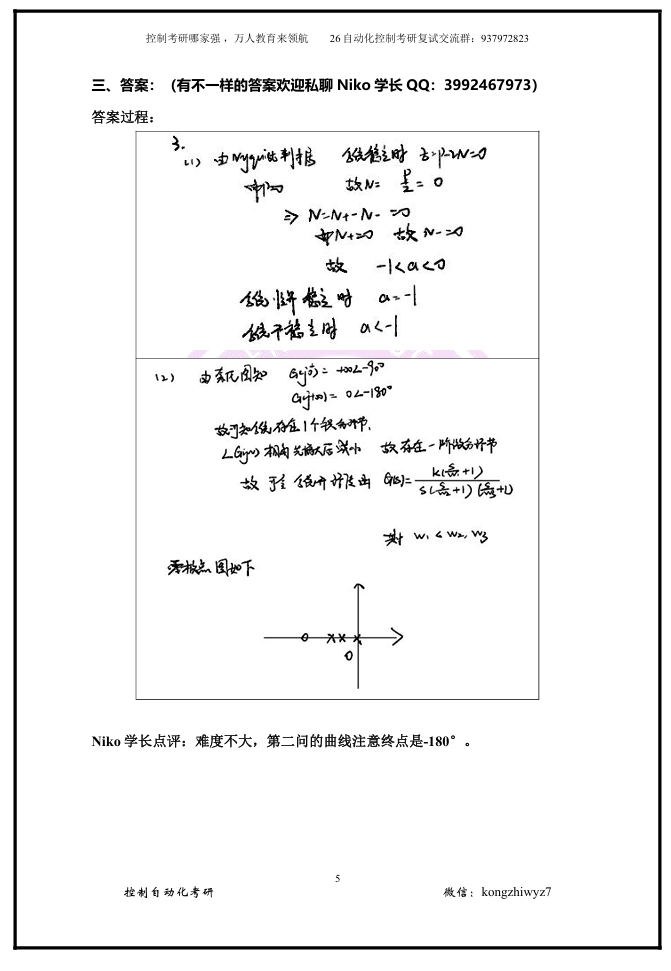 控制考研哪家强，万人教育来领航 26 自动化控制考研复试交流群：937972823
三、答案：（有不一样的答案欢迎私聊 Niko 学长 QQ：3992467973）
答案过程：
3.
(1) 由Nyquist判据 系统稳定时 Z=P-2N=0
中P=0 故N= P/2 = 0
⇒ N=N+-N- =0
中N+=0 故 N-=0
故 -1<a<0
系统临界稳定时 a=-1
系统不稳定时 a<-1
(2) 由奈氏图知 G(j0)= +∞∠-90°
G(j+∞)= 0∠-180°
故可知系统存在1个积分环节.
∠G(jw) 相角先减大后减小 故存在一阶微分环节
故 系统开环传函 G(s)= K(s/w₁+1) / s(s/w₂+1)(s/w₃+1)
w₁ < w₂, w₃
零极点图如下
0
Niko 学长点评：难度不大，第二问的曲线注意终点是-180°。
5
控制自动化考研 微信：kongzhiwyz7